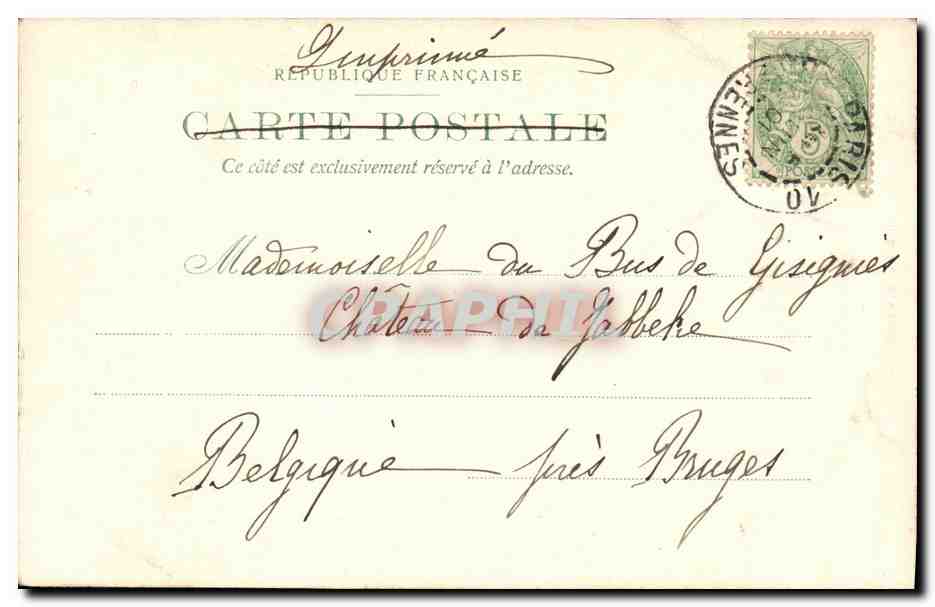 Imprimé
RÉPUBLIQUE FRANÇAISE
CARTE POSTALE
Ce côté est exclusivement réservé à l'adresse.
PARIS
RENNES
5
POSTES
01
Mademoiselle du Bus de Gisignies
Château de Jabbeke
CPAPHIL
Belgique près Bruges